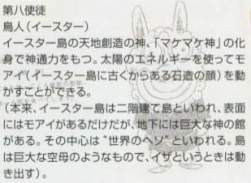 第八使徒
鳥人（イースター）
イースター島の天地創造の神、「マケマケ神」の化
身で神通力をもつ。太陽のエネルギーを使ってモ
アイ（イースター島に古くからある石造の顔）を動
かすことができる。
（本来、イースター島は二階建て島といわれ、表面
にはモアイがあるだけだが、地下には巨大な神の館
がある。その中心は“世界のヘソ”といわれる。島
は巨大な空母のようなもので、イザというときは動
き出す）。